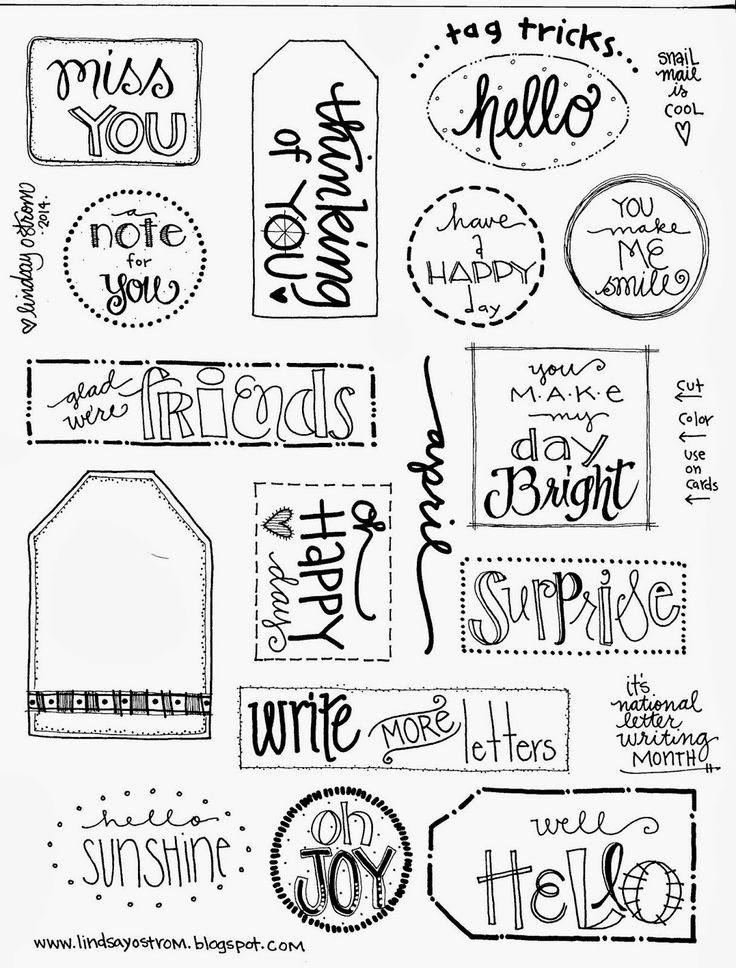 miss
YOU
thinking
of YOU
...tag tricks...
hello
snail
mail
is
COOL
lindsay ostrom
.2014.
a
note
for
you
have
a
HAPPY
day
YOU
make
ME
smile
glad
we're
friends
april
you
M·A·K·E
my
day
Bright
cut
color
use
on
cards
oh
HAPPY
days
Surprise
write
MORE
letters
it's
national
letter
writing
MONTH
hello
SUNSHINE
oh
JOY
well
HeLlo
www.lindsayostrom.blogspot.com